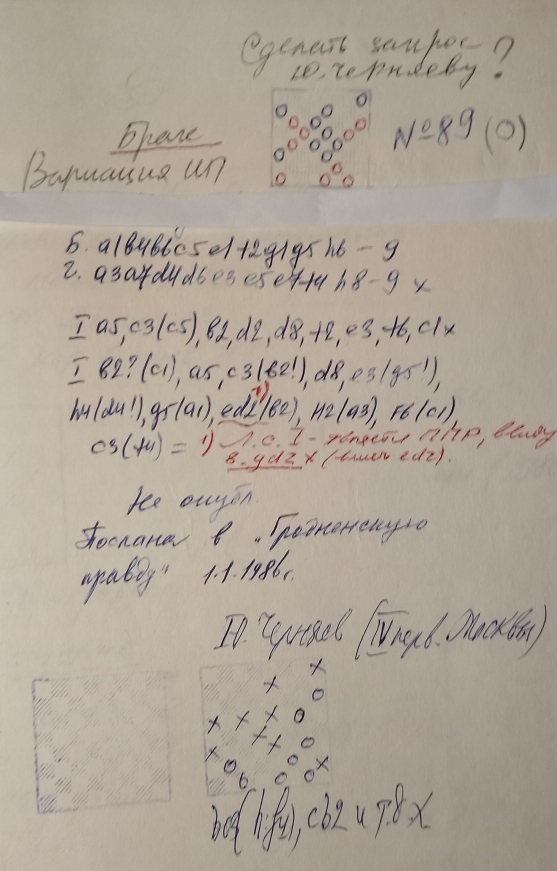 Сделать запрос
Ю. Черняеву?
Брак
Вариация ИП
№89 (О)
Б. a1 b4 b6 c5 e1 f2 g1 g5 h6 - 9
Ч. a3 a7 d4 d6 e3 e5 e7 f4 h8 - 9 x
I a5, c3 (c5), b2, d2, d8, f2, e3, f6, c1x
I b2? (c1), a5, c3 (b2!), d8, e3 (g5!),
h4 (d4!), g5 (a1), ed2 (b2), H2 (a3), F6 (c1),
1)
c3 (f4) = 1) Л.с. I - является ППР, ввиду
8. gd2 x (вместо ed2).
Не опубл.
Послана в "Гродненскую
правду" 1.1.1986г.
Ю. Черняев (IV перв. Москвы)
), cb2 и т.д. X